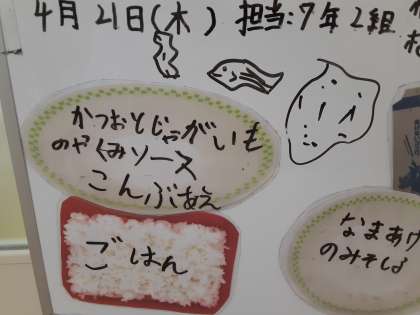 4月21日(木) 担当:7年2組
かつおとじゃがいも
のやくみソース
こんぶあえ
ごはん
なまあげ
のみそし